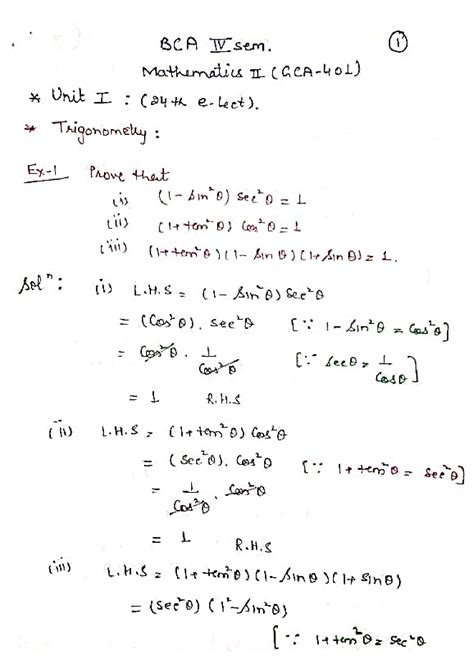 BCA IV sem. 1
Mathematics II (GCA-401)
* Unit I : (24th e-lect).
* Trigonometry :
Ex-1 Prove that
(i) (1-sin²θ) sec²θ = 1
(ii) (1+tan²θ) cos²θ = 1
(iii) (1+tan²θ)(1-sinθ)(1+sinθ) = 1.
Solⁿ: (i) L.H.S = (1-sin²θ) sec²θ
= (cos²θ). sec²θ [∵ 1-sin²θ = cos²θ]
= cos²θ. 1/cos²θ [∵ secθ = 1/cosθ]
= 1 R.H.S
(ii) L.H.S = (1+tan²θ) cos²θ
= (sec²θ). cos²θ [∵ 1+tan²θ = sec²θ]
= 1/cos²θ. cos²θ
= 1 R.H.S
(iii) L.H.S = (1+tan²θ)(1-sinθ)(1+sinθ)
= (sec²θ) (1²-sin²θ)
[∵ 1+tan²θ = sec²θ